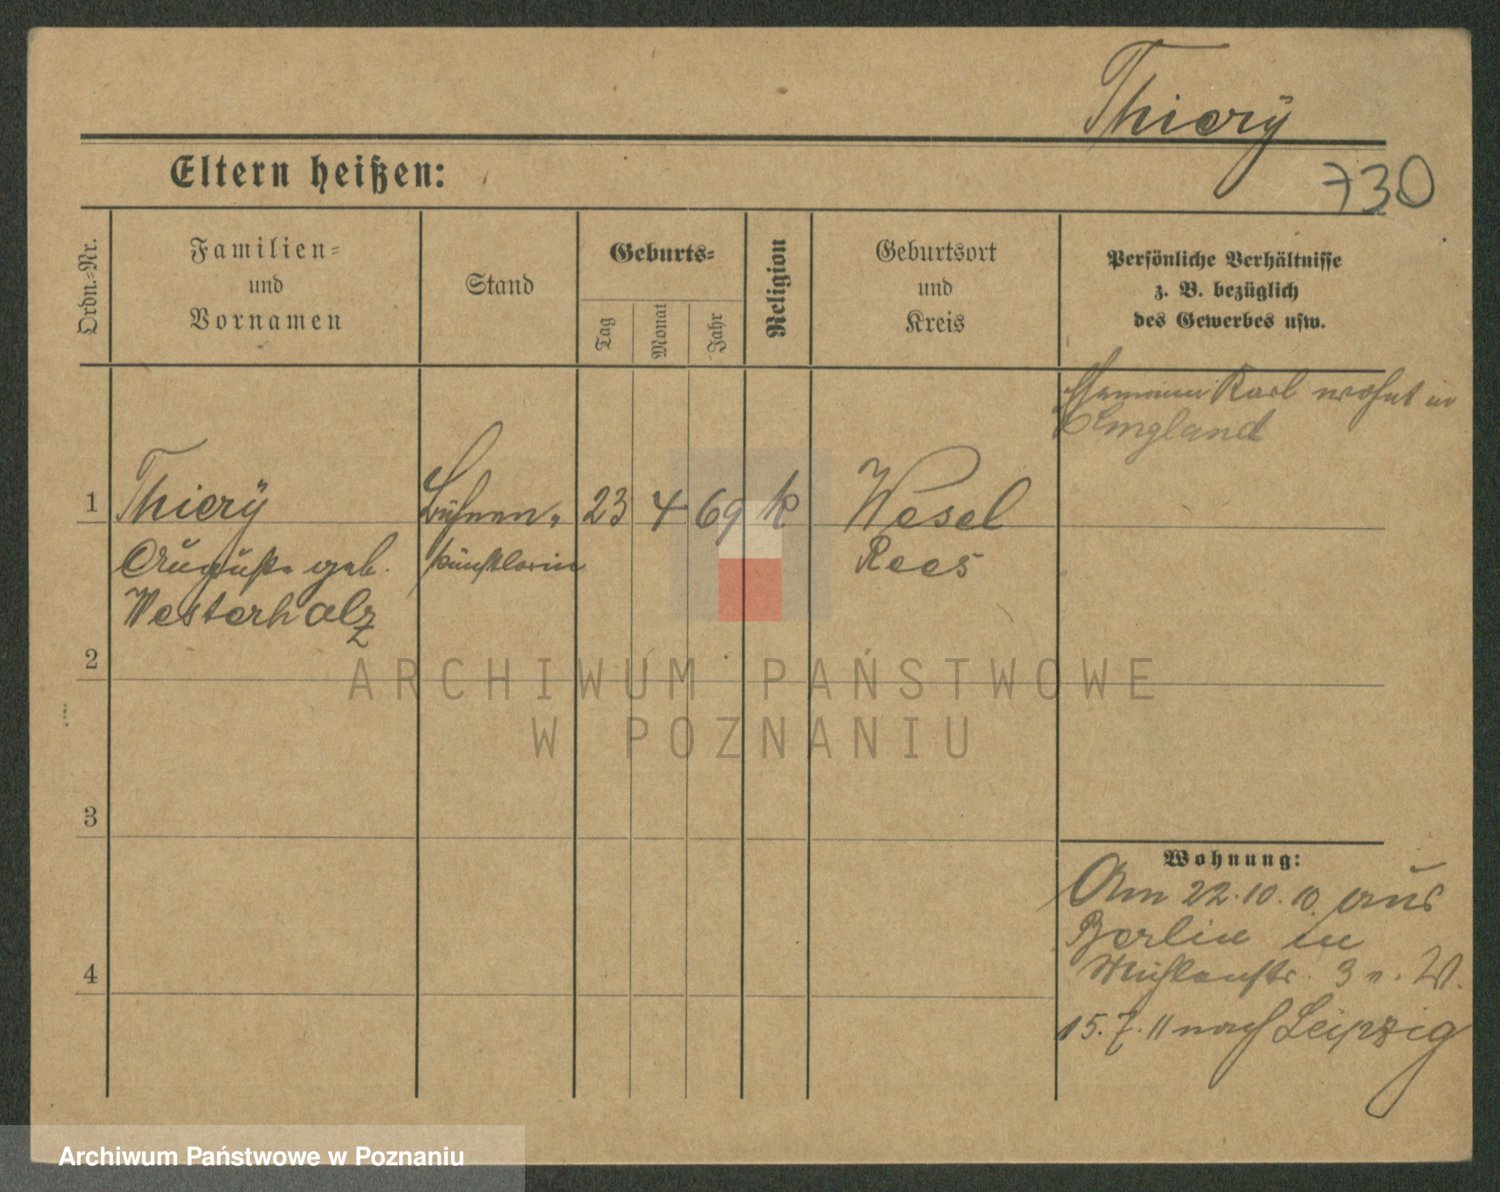 Thierÿ
Eltern heißen:
730
Ordn.-Nr.
Familien-
und
Vornamen
Stand
Geburts-
Tag
Monat
Jahr
Religion
Geburtsort
und
Kreis
Persönliche Verhältnisse
z. B. bezüglich
des Gewerbes usw.
Karl wohnt in
England
1
Thierÿ
Auguste geb.
Westerholz
Bühnen-
künstlerin
23
4
69
k
Wesel
Rees
2
3
4
Wohnung:
Am 22.10.10. aus
Berlin in
Mühlenstr. 3 W.
15.7.11 nach Leipzig
ARCHIWUM PAŃSTWOWE
W POZNANIU
Archiwum Państwowe w Poznaniu